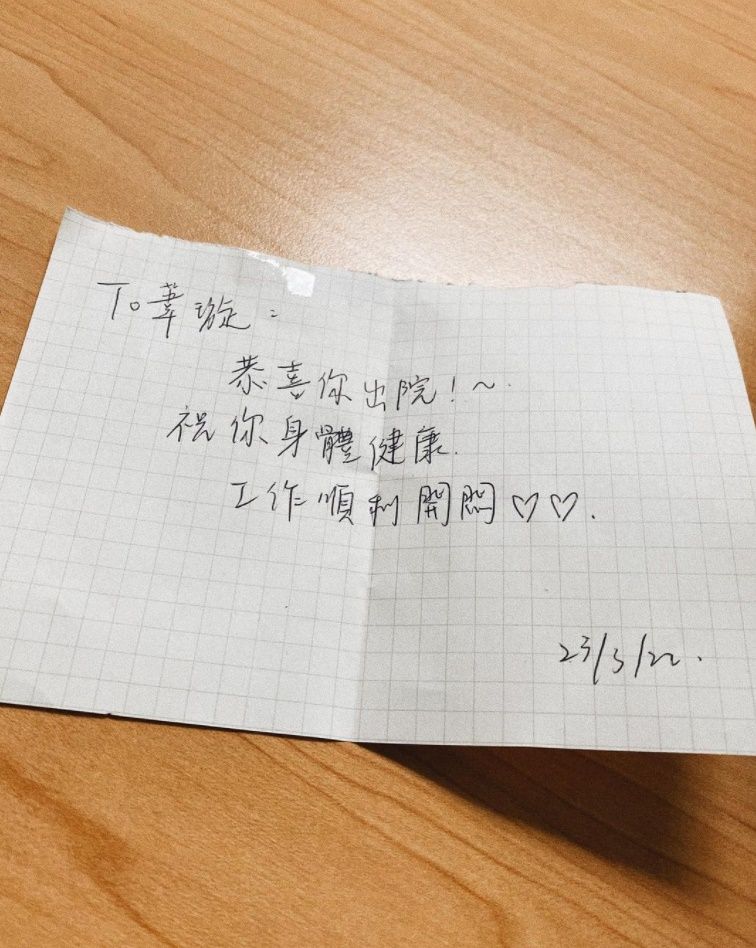 To 葦璇：
恭喜你出院！～
祝你身體健康.
工作順利開悶♡♡.
23/3/22.